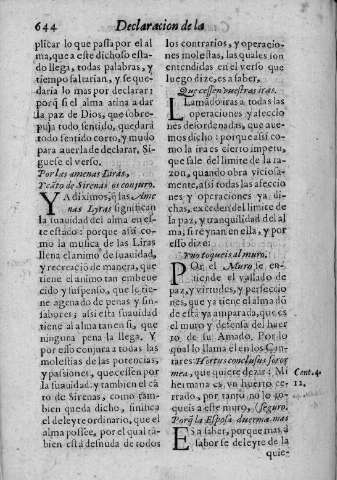 644 Declaracion de la
plicar lo que passa por el al
ma, que a este dichoso esta-
do llega, todas palabras, y
tiempo faltarian, y se que-
daria lo mas por declarar;
porq̃ si el alma atina a dar
la paz de Dios, que sobre-
puja todo sentido, quedarà
todo sentido corto, y mudo
para auerla de declarar. Si-
guese el verso.
Por las amenas Liras,
Y cãto de Sirenas os conjuro.
YA diximos, q̃ las Ame
nas Lyras significan
la suauidad del alma en es-
te estado: porque assi co-
mo la musica de las Liras
llena el animo de suauidad,
y recreaciõ de manera, que
tiene el animo tan embeue
cido y suspenso, que le tie-
ne agenado de penas y sin-
sabores; assi esta suauidad
tiene al alma tan en si, que
ninguna pena la llega. Y
por esso conjura a todas las
molestias de las potencias,
y passiones, que cessen por
la suauidad: y tambien el cã
to de Sirenas, como tam-
bien queda dicho, sinifica
el deleyte ordinario, que el
alma possee, por el qual tã-
bien està desnuda de todos
los contrarios, y operacio-
nes molestas, las quales son
entendidas en el verso que
luego dize, es a saber,
Que cessen vuestras iras.
LLamado iras a todas las
operaciones y afeccio
nes desordenadas, que aue-
mos dicho: porque assi co-
mo la ira es cierto impetu,
que sale del limite de la ra-
zon, quando obra viciosa-
mente, assi todas las afeccio
nes y operaciones ya di-
chas, exceden del limite de
la paz, y tranquilidad del al
ma, si reynan en ella, y por
esso dize:
Y no toqueis al muro.
POr el Muro se en-
tiende el vallado de
paz, y virtudes, y perfeccio
nes, que ya tiene el alma dõ
de està ya amparada, que es
el muro y defensa del huer
to de su Amado. Por lo
qual lo llama èl en los Can-
tares: Hortus conclusus soror
mea, que quiere dezir: Mi
hermana es vn huerto cer-
rado, por tanto no lo to-
queis a este muro,
Cant. 4.
12.
Porq̃ la Esposa duerma mas seguro.
ES a saber, porque mas a
sabor se deleyte de la
quie-